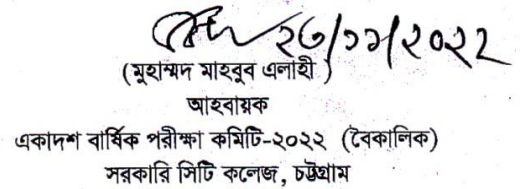 ২৩/১১/২০২২
(মুহাম্মদ মাহবুব এলাহী)
আহবায়ক
একাদশ বার্ষিক পরীক্ষা কমিটি-২০২২ (বৈকালিক)
সরকারি সিটি কলেজ, চট্টগ্রাম